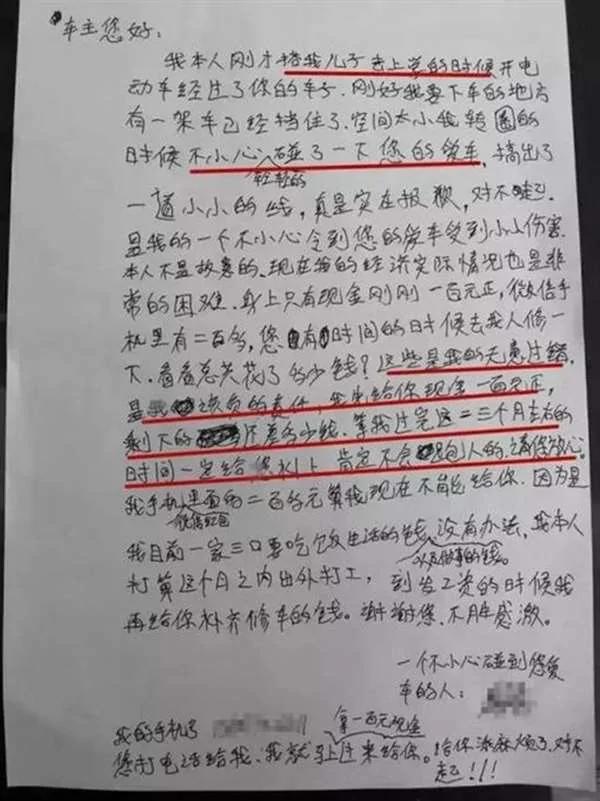 车主您好:
我本人刚才搭我儿子去上学的时候开电
动车经过了你的车子.刚好我要下车的地方
有一架车已经挡住了.空间太小我转圈的
时候不小心碰了一下您的爱车,搞出了
轻轻的
一道小小的线,真是实在报歉,对不起
是我的一个不小心令到您的爱车受到小小伤害
本人不是故意的.现在我的经济实际情况也是非
常的困难.身上只有现金刚刚一百元正,微信手
机里有二百多,您有时间的时候去找人修一
下.看看总共花了多少钱?这些是我的无意过错
是我该负的责任,我先给你现金一百元正,
剩下的还差多少钱.等我过完这二三个月左右的
时间一定给您补上肯定不会跑人的.请您放心
我手机里面的二百多元算我现在不能给你.因为是
微信红包
我目前一家三口要吃饭生活的钱,没有办法,我本人
以及做事的钱。
打算这个月之内出外打工,到发工资的时候我
再给你补齐修车的钱。谢谢您.不胜感激。
一个不小心碰到您爱
车的人:
我的手机了
拿一百元现金
您打电话给我.我就马上过来给你。给你添麻烦了.对不
起!!!